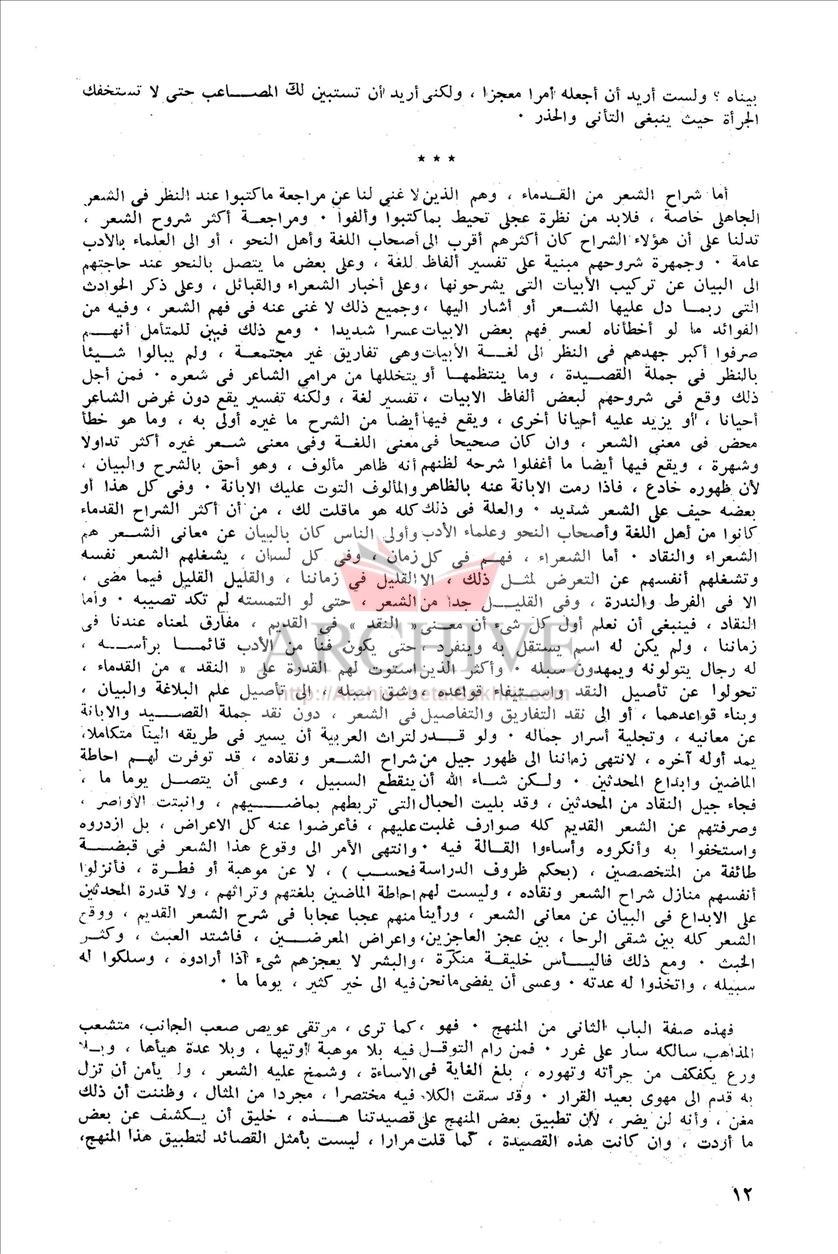 بيناه ؟ ولست أريد أن أجعله أمرا معجزا ، ولكنى أريد أن تستبين لك المصاعب حتى لا تستخفك
الجرأة حيث ينبغى التأنى والحذر ٠
***
أما شراح الشعر من القدماء ، وهم الذين لا غنى لنا عن مراجعة ماكتبوا عند النظر فى الشعر
الجاهلى خاصة ، فلابد من نظرة عجلى تحيط بما كتبوا وألفوا ٠ ومراجعة أكثر شروح الشعر ،
تدلنا على أن هؤلاء الشراح كان أكثرهم أقرب الى أصحاب اللغة وأهل النحو ، أو الى العلماء بالأدب
عامة ٠ وجمهرة شروحهم مبنية على تفسير ألفاظ للغة ، وعلى بعض ما يتصل بالنحو عند حاجتهم
الى البيان عن تركيب الأبيات التى يشرحونها ، وعلى أخبار الشعراء والقبائل ، وعلى ذكر الحوادث
التى ربما دل عليها الشعر أو أشار اليها ، وجميع ذلك لا غنى عنه فى فهم الشعر ، وفيه من
الفوائد ما لو أخطأناه لعسر فهم بعض الابيات عسرا شديدا ٠ ومع ذلك فبين للمتأمل أنهم
صرفوا أكبر جهدهم فى النظر الى لغة الأبيات وهى تفاريق غير مجتمعة ، ولم يبالوا شيئا
بالنظر فى جملة القصيدة ، وما ينتظمها أو يتخللها من مرامي الشاعر فى شعره ٠ فمن أجل
ذلك وقع فى شروحهم لبعض ألفاظ الابيات ، تفسير لغة ، ولكنه تفسير يقع دون غرض الشاعر
أحيانا ، أو يزيد عليه أحيانا أخرى ، ويقع فيها أيضا من الشرح ما غيره أولى به ، وما هو خطأ
محض فى معنى الشعر ، وان كان صحيحا فى معنى اللغة وفى معنى شعر غيره أكثر تداولا
وشهرة ، ويقع فيها أيضا ما أغفلوا شرحه لظنهم أنه ظاهر مألوف ، وهو أحق بالشرح والبيان ،
لأن ظهوره خادع ، فاذا رمت الابانة عنه بالظاهر والمألوف التوت عليك الابانة ٠ وفى كل هذا أو
بعضه حيف على الشعر شديد ٠ والعلة فى ذلك كله هو ماقلت لك ، من أن أكثر الشراح القدماء
كانوا من أهل اللغة وأصحاب النحو وعلماء الأدب وأولى الناس كان بالبيان عن معانى الشعر هم
الشعراء والنقاد ٠ أما الشعراء ، فهم فى كل زمان ، وفى كل لسان ، يشغلهم الشعر نفسه
وتشغلهم أنفسهم عن التعرض لمثل ذلك ، الا القليل فى زماننا ، والقليل القليل فيما مضى ،
الا فى الفرط والندرة ، وفى القليل جدا من الشعر ، حتى لو التمسته لم تكد تصيبه ٠ وأما
النقاد ، فينبغى أن نعلم أول كل شىء أن معنى « النقد » فى القديم ، مفارق لمعناه عندنا فى
زماننا ، ولم يكن له اسم يستقل به وينفرد حتى يكون فنا من الأدب قائما برأسه ،
له رجال يتولونه ويمهدون سبيله ٠ وأكثر الذين استوت لهم القدرة على « النقد » من القدماء ،
تحولوا عن تأصيل النقد واستيفاء قواعده ، وشق سبله ، الى تأصيل علم البلاغة والبيان ،
وبناء قواعدهما ، أو الى نقد التفاريق والتفاصيل فى الشعر ، دون نقد جملة القصيد والابانة
عن معانيه ، وتجلية أسرار جماله ٠ ولو قدر لتراث العربية أن يسير فى طريقه الينا متكاملا،
يمد أوله آخره ، لانتهى زماننا الى ظهور جيل من شراح الشعر ونقاده ، قد توفرت لهم احاطة
الماضين وابداع المحدثين ٠ ولكن شاء الله أن ينقطع السبيل ، وعسى أن يتصل يوما ما ،
فجاء جيل النقاد من المحدثين ، وقد بليت الحبال التى تربطهم بماضيهم ، وانبتت الأواصر ،
وصرفتهم عن الشعر القديم كله صوارف غلبت عليهم ، فأعرضوا عنه كل الاعراض ، بل ازدروه
واستخفوا به وأنكروه وأساءوا القالة فيه ٠ وانتهى الأمر الى وقوع هذا الشعر فى قبضة
طائفة من المتخصصين ، (بحكم ظروف الدراسة فحسب) ، لا عن موهبة أو فطرة ، فأنزلوا
أنفسهم منازل شراح الشعر ونقاده ، وليست لهم احاطة الماضين بلغتهم وتراثهم ، ولا قدرة المحدثين
على الابداع فى البيان عن معانى الشعر ، ورأينا منهم عجبا عجابا فى شرح الشعر القديم ، ووقع
الشعر كله بين شقى الرحا ، بين عجز العاجزين، واعراض المعرضين ، فاشتد العبث ، وكثر
الخبث ٠ ومع ذلك فاليأس خليقة منكرة ، والبشر لا يعجزهم شىء اذا أرادوه ، وسلكوا له
سبيله ، واتخذوا له عدته ٠ وعسى أن يفضى مانحن فيه الى خير كثير ، يوما ما ٠
فهذه صفة الباب الثانى من المنهج ٠ فهو ، كما ترى ، مرتقى عويص صعب الجانب، متشعب
المذاهب سالكه سار على غرر ٠ فمن رام التوقل فيه بلا موهبة أوتيها ، وبلا عدة هيأها ، وبلا
ورع يكفكف من جرأته وتهوره ، بلغ الغاية فى الاساءة ، وشمخ عليه الشعر ، ولم يأمن أن تزل
به قدم الى مهوى بعيد القرار ٠ وقد سقت الكلام فيه مختصرا ، مجردا من المثال ، وظننت أن ذلك
مغن ، وأنه لن يضر ، لأن تطبيق بعض المنهج على قصيدتنا هذه ، خليق أن يكشف عن بعض
ما أردت ، وان كانت هذه القصيدة ، كما قلت مرارا ، ليست بأمثل القصائد لتطبيق هذا المنهج،
١٢
ARCHIVE